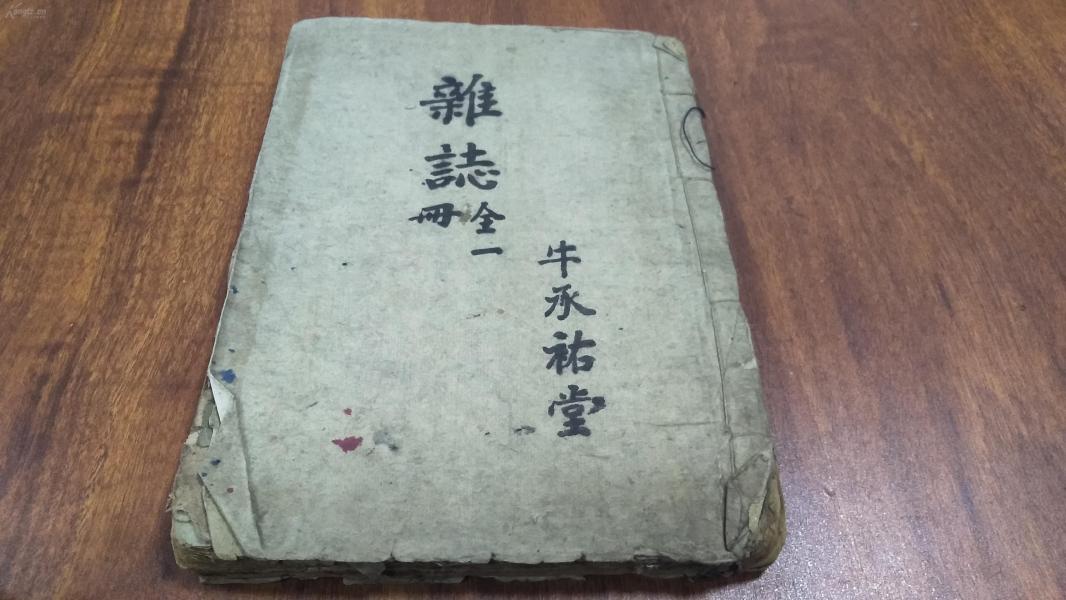 雜誌
全一冊
牛承祐堂
Kongfz.cn